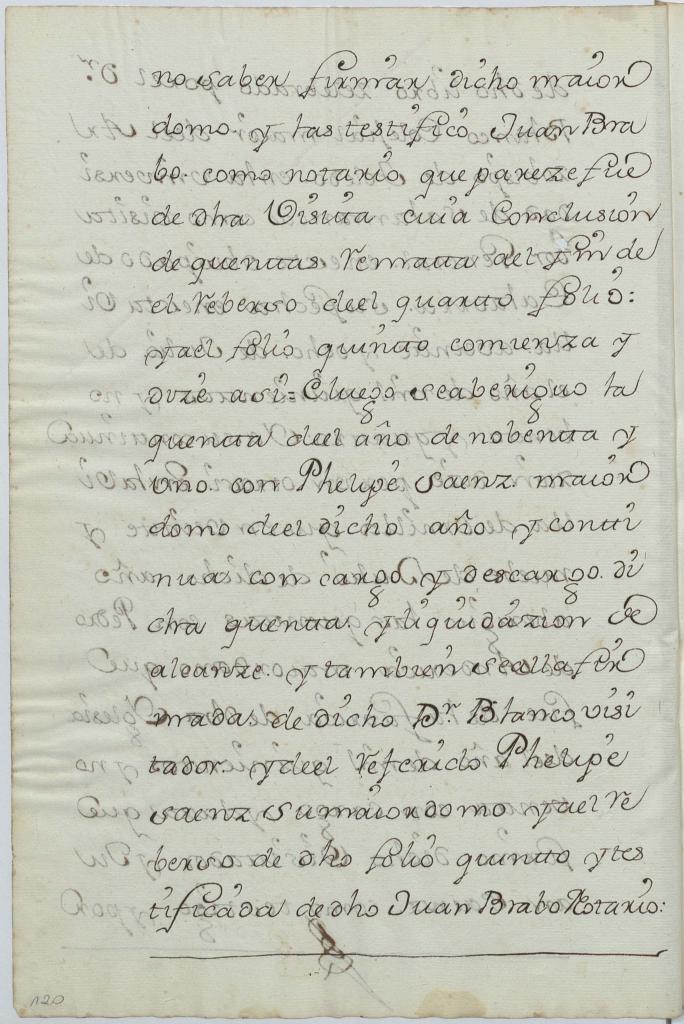 no saber firmar dicho maior
domo. y las testificó Juan Bra
bo. como notario, que pareze fue
de dha Visitta cuia Conclusión
de quenttas Rematta del fin de
el Reberso deel quartto folio:
yael folio quintto comienza y
dize asi = E luego seaberiguo la
quentta deel año de nobentta y
uno. con Phelipe Saenz. maior
domo deel dicho año y contti
nuas con cargo. y descargo. di
cha quentta. y liquidazion de
alcanze. y tambien seallafir
mada. de dicho Dr. Blanco, visi
tador. ydeel Referido Phelipe
saenz sumaiordomo yael Re
berso de dho folio quintto ytes
tificada de dho Juan Brabo Notario:
120